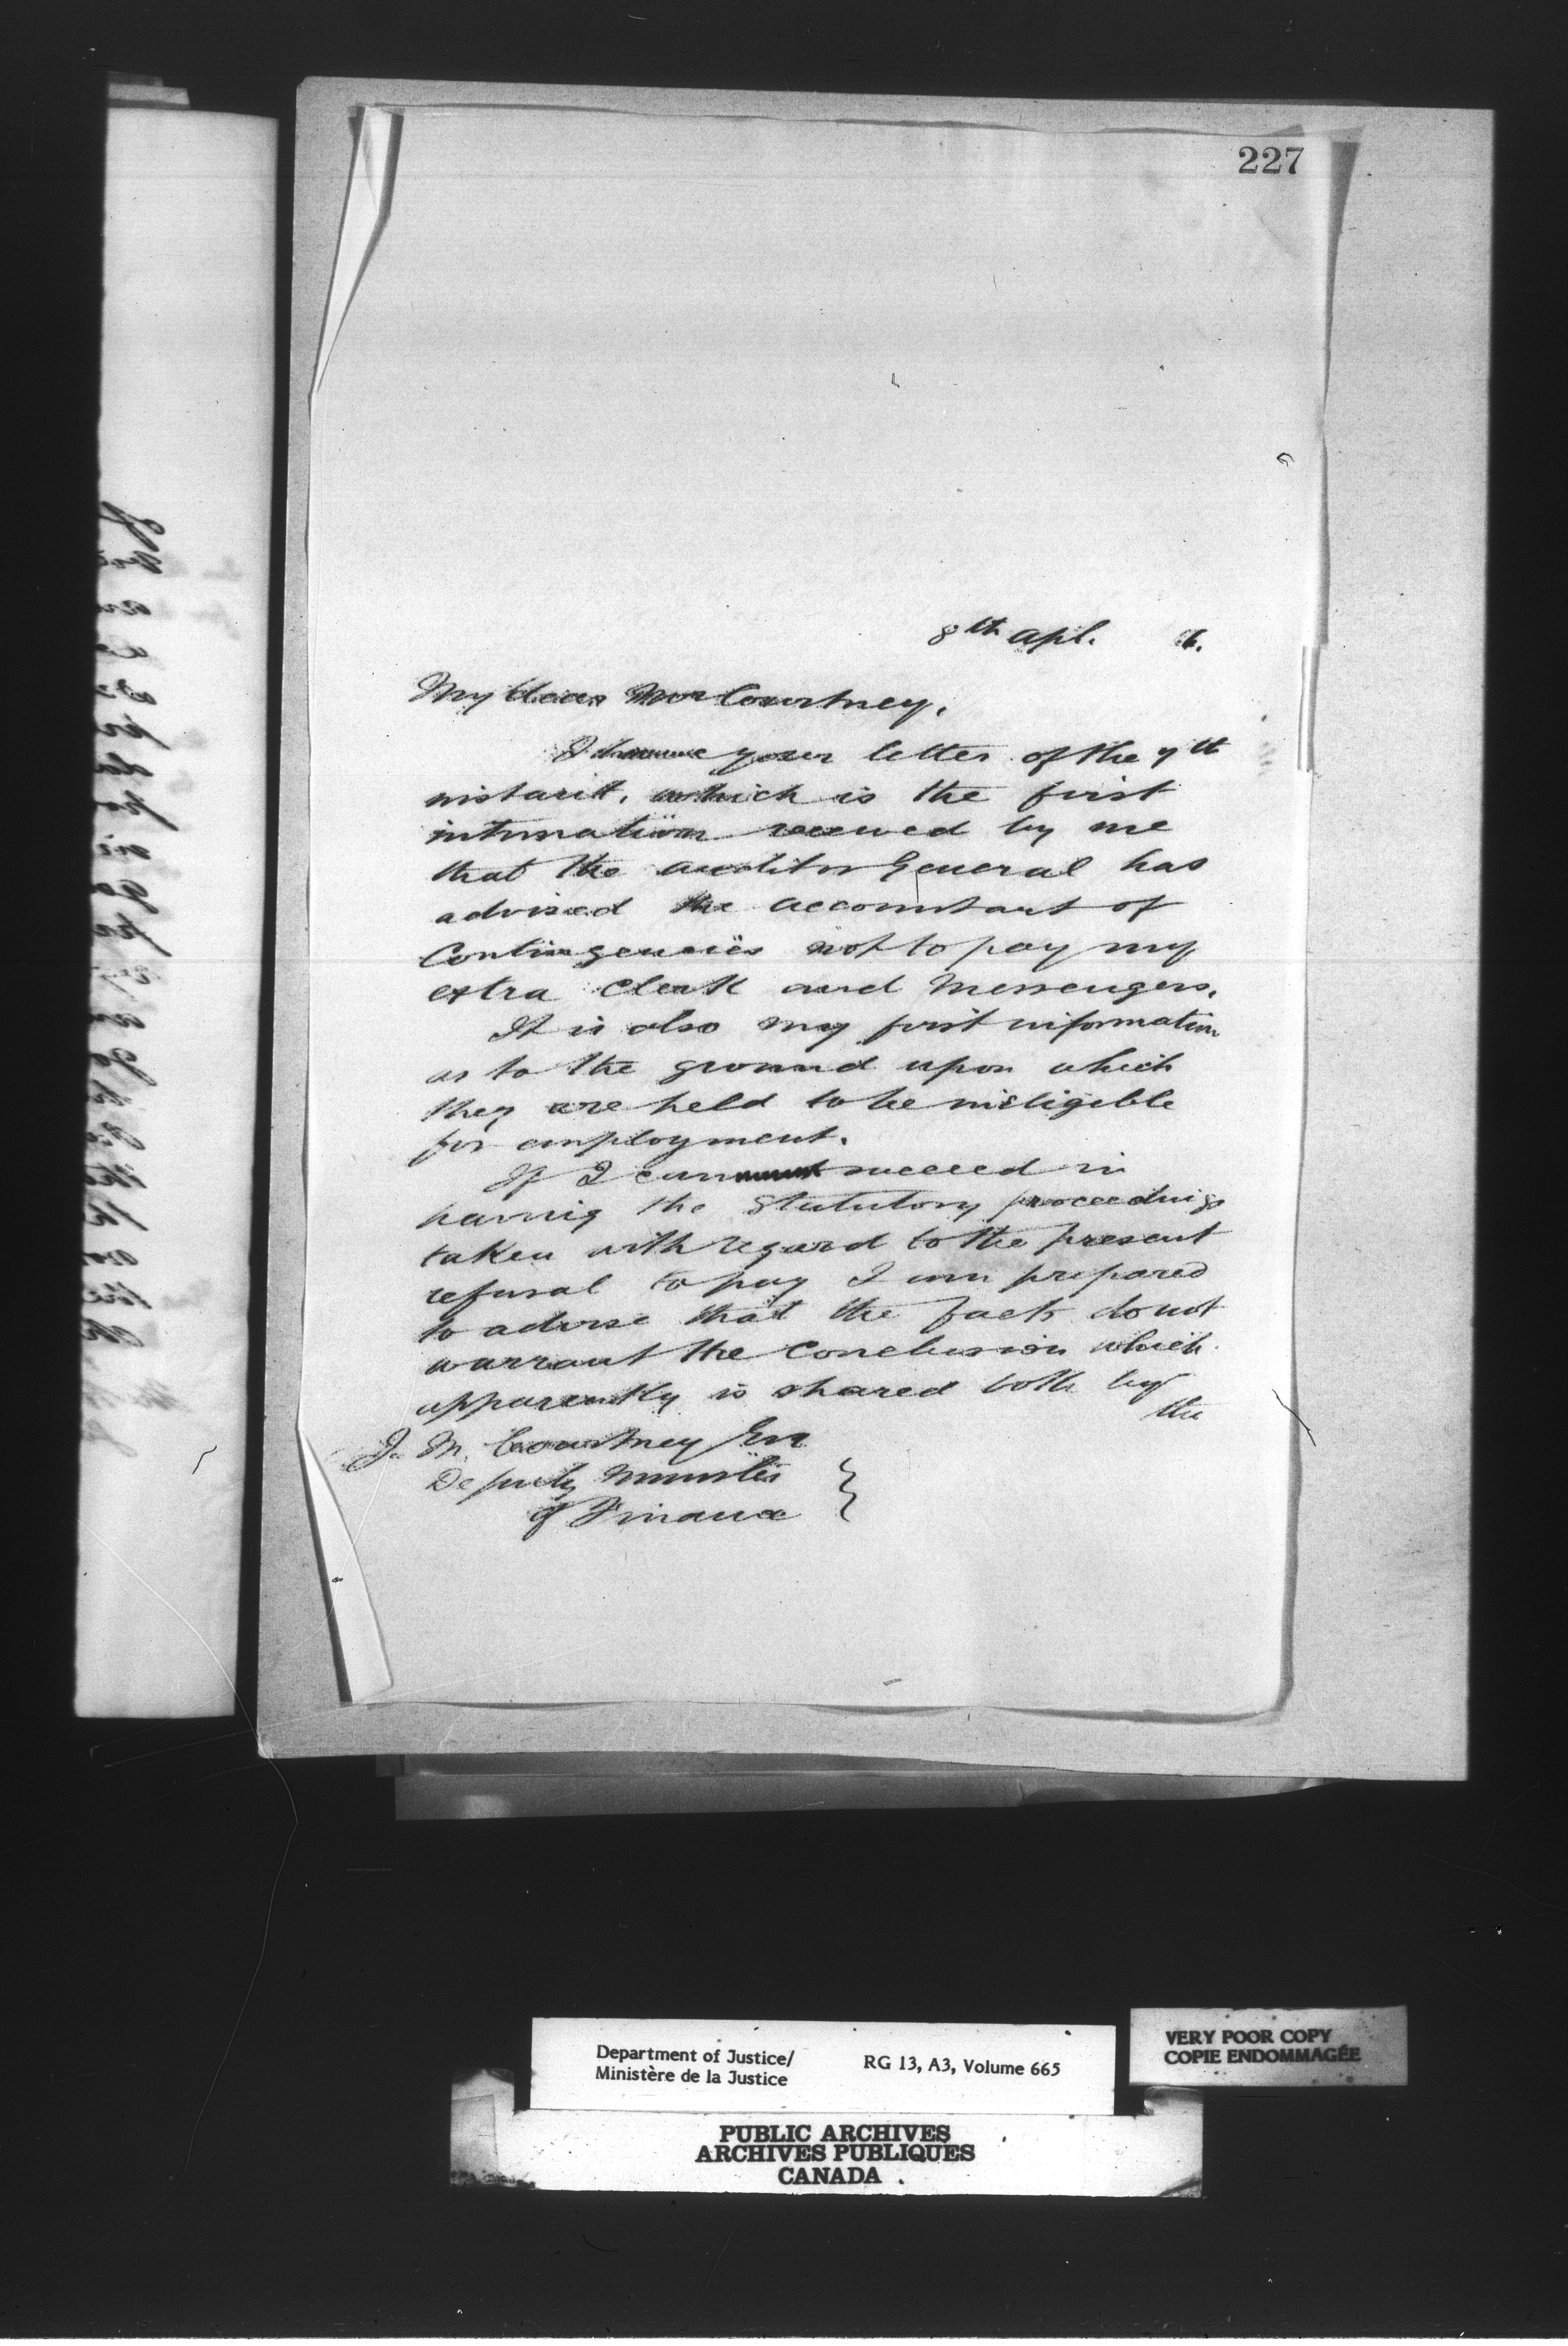 227
8th Apl. 6.
My dear Mr Courtney,
I have your letter of the 7th
instant, which is the first
intimation received by me
that the Auditor General has
advised the accountant of
Contingencies not to pay my
extra Clerk and Messengers.
It is also my first information
as to the ground upon which
they are held to be ineligible
for employment.
If I can succeed in
having the Statutory proceedings
taken with regard to the present
refusal to pay I am prepared
to advise that the facts do not
warrant the conclusion which
apparently is shared both by
the
J. M. Courtney Esq
Deputy Minister
of Finance
Department of Justice/
Ministère de la Justice
RG 13, A3, Volume 665
VERY POOR COPY
COPIE ENDOMMAGÉE
PUBLIC ARCHIVES
ARCHIVES PUBLIQUES
CANADA